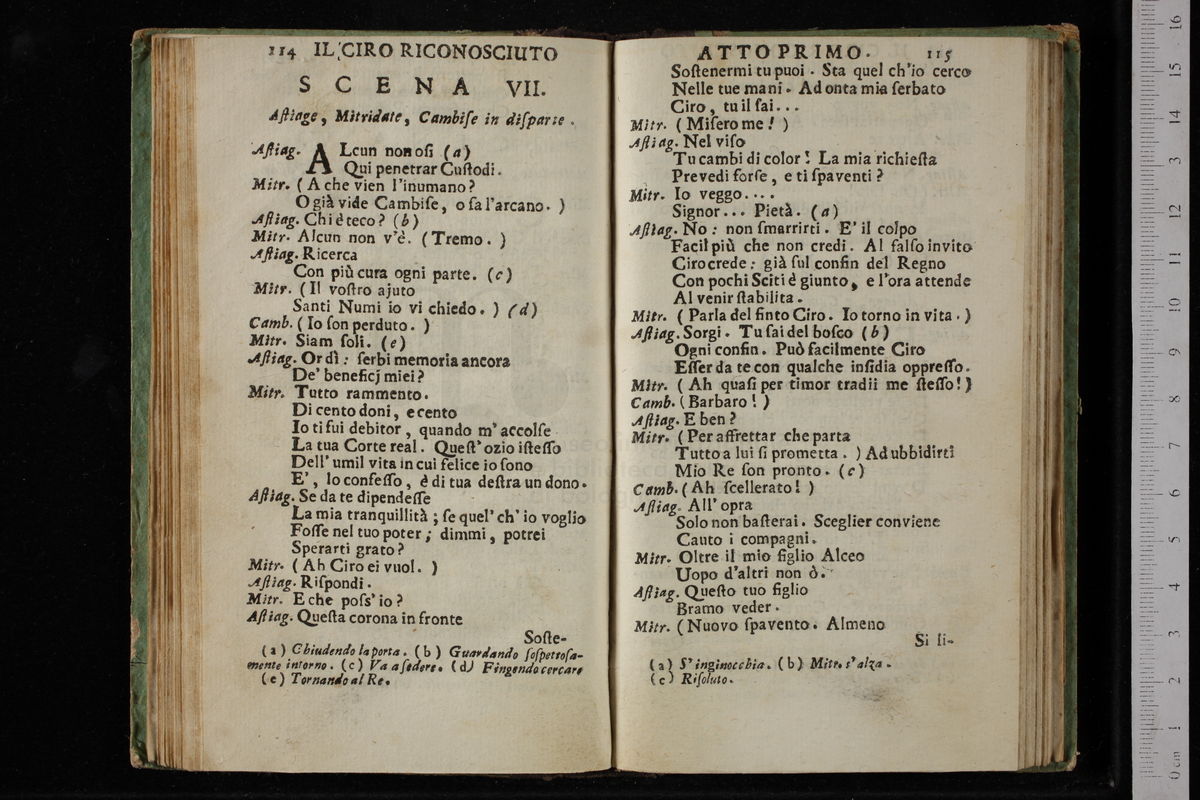 114 IL CIRO RICONOSCIUTO
SCENA VII.
Aſtiage, Mitridate, Cambiſe in diſparte.
Aſtiag. ALcun non oſi (a)
Qui penetrar Cuſtodi.
Mitr. (A che vien l'inumano?
O già vide Cambiſe, o ſa l'arcano. )
Aſtiag. Chi è teco? (b)
Mitr. Alcun non v'è. (Tremo. )
Aſtiag. Ricerca
Con più cura ogni parte. (c)
Mitr. (Il voſtro ajuto
Santi Numi io vi chiedo. ) (d)
Camb. (Io ſon perduto. )
Mitr. Siam ſoli. (e)
Aſtiag. Or dì: ſerbi memoria ancora
De' beneficj miei?
Mitr. Tutto rammento.
Di cento doni, e cento
Io ti fui debitor, quando m'accolſe
La tua Corte real. Queſt' ozio iſteſſo
Dell' umil vita in cui felice io ſono
E', lo confeſſo, è di tua deſtra un dono.
Aſtiag. Se da te dipendeſſe
La mia tranquillità; ſe quel' ch' io voglio
Foſſe nel tuo poter; dimmi, potrei
Sperarti grato?
Mitr. (Ah Ciro ei vuol. )
Aſtiag. Riſpondi.
Mitr. E che poſs' io?
Aſtiag. Queſta corona in fronte
Soſte-
(a) Chiudendo la porta. (b) Guardando ſoſpettoſa-
mente intorno. (c) Va a ſedere. (d) Fingendo cercare
(e) Tornando al Re.
ATTO PRIMO. 115
Soſtenermi tu puoi. Sta quel ch'io cerco
Nelle tue mani. Ad onta mia ſerbato
Ciro, tu il ſai...
Mitr. (Miſero me! )
Aſtiag. Nel viſo
Tu cambi di color! La mia richieſta
Prevedi forſe, e ti ſpaventi?
Mitr. Io veggo....
Signor... Pietà. (a)
Aſtiag. No: non ſmarrirti. E' il colpo
Facil più che non credi. Al falſo invito
Ciro crede: già ſul confin del Regno
Con pochi Sciti è giunto, e l'ora attende
Al venir ſtabilita.
Mitr. (Parla del finto Ciro. Io torno in vita. )
Aſtiag. Sorgi. Tu ſai del boſco (b)
Ogni confin. Può facilmente Ciro
Eſſer da te con qualche inſidia oppreſſo.
Mitr. (Ah quaſi per timor tradii me ſteſſo!)
Camb. (Barbaro! )
Aſtiag. E ben?
Mitr. (Per affrettar che parta
Tutto a lui ſi prometta. ) Ad ubbidirti
Mio Re ſon pronto. (c)
Camb. (Ah ſcellerato! )
Aſtiag. All' opra
Solo non baſterai. Sceglier conviene
Cauto i compagni.
Mitr. Oltre il mio figlio Alceo
Uopo d'altri non ò.
Aſtiag. Queſto tuo figlio
Bramo veder.
Mitr. (Nuovo ſpavento. Almeno
Si li-
(a) S'inginocchia. (b) Mitr. s'alza.
(c) Riſoluto.
16
15
14
13
12
11
10
9
8
7
6
5
4
3
2
1
0 cm